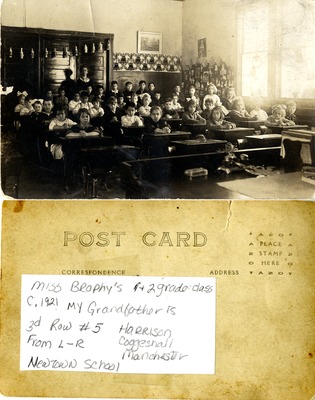 POST CARD
CORRESPONDENCE ADDRESS
AZOT
PLACE
STAMP
HERE
AZOT
Miss Brophy's 1+2 grade class
C. 1921 My Grandfather is
3d Row #5 Harrison
From L-R Coggeshall
Manchester
Newtown School